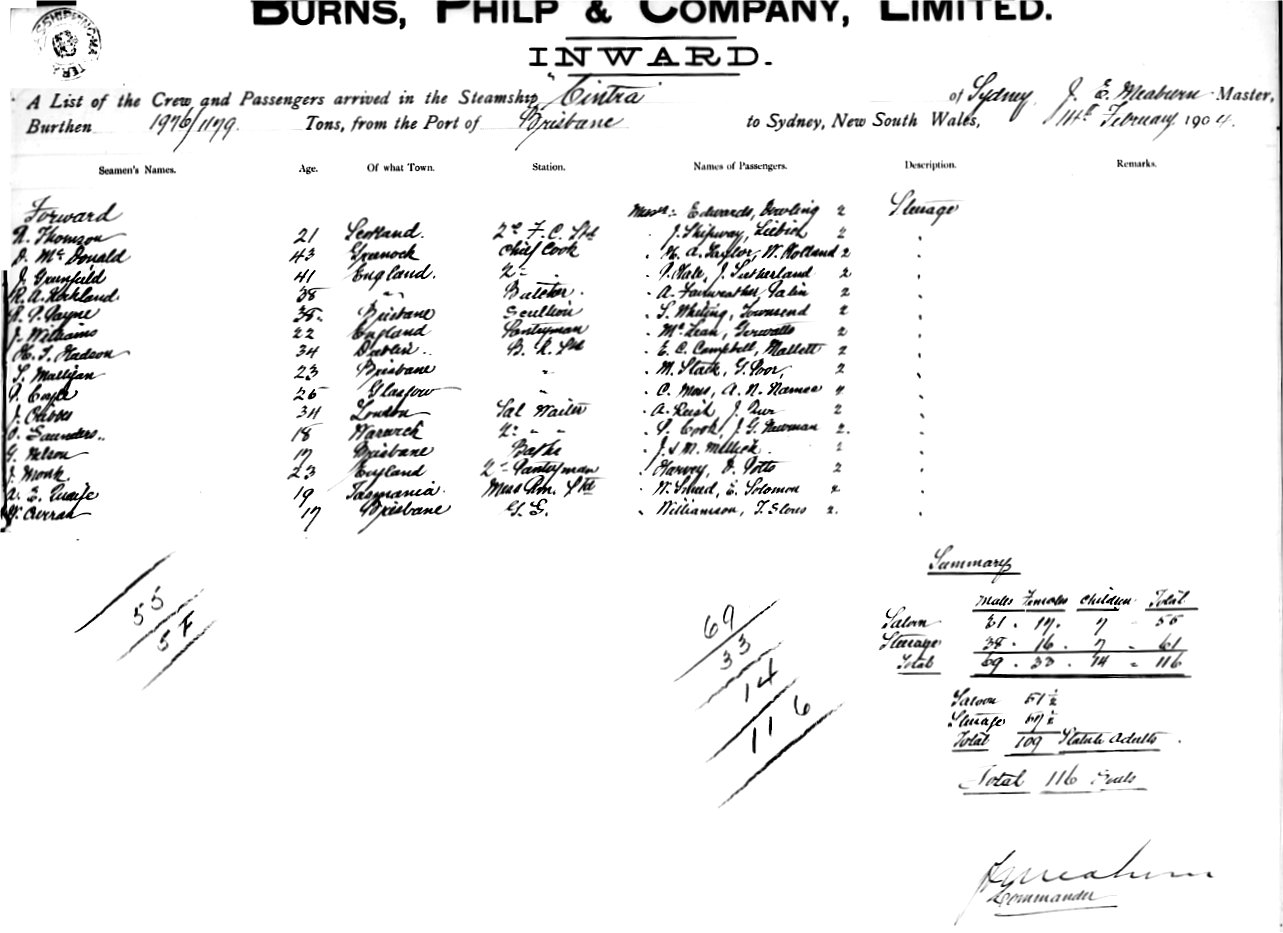 BURNS, PHILP & COMPANY, LIMITED.
INWARD.
A List of the Crew and Passengers arrived in the Steamship "Cintra" of Sydney, J. E. Meaburn Master,
Burthen 1976/1179 Tons, from the Port of Brisbane to Sydney, New South Wales, 14th February 1904.
Seamen's Names. Age. Of what Town. Station. Names of Passengers. Description. Remarks.
Forward Messrs:- Edwards, Dowling 2 Steerage
R. Thomson 21 Scotland. 2nd F. C. Std J. Shipway, Liebich 2 "
D. McDonald 43 Greenock Chief Cook H. A. Taylor, W. Holland 2 "
J. Greenfield 41 England. 2nd " P. Hale, J. Sutherland 2 "
R. A. Kirkland 38 " " Butcher A. Fairweather, Palin 2 "
R. P. Payne 38 Brisbane Scullion S. Whiting, Townsend 2 "
J. Williams 22 England Pantryman McLean, 2 "
H. J. Hadson 34 Dublin B. R. Std E. C. Campbell, Mallett 2 "
S. Mulligan 23 Brisbane " M. Slack, G. Poor, 2 "
P. 25 Glasgow " C. Moss, A. N. Namee "
J. 34 London Sal Waiter A. J. 2 "
O. Saunders 18 Warwick 2nd " " P. Cook, J. G. Newman 2 "
G. Nelson 17 Brisbane Baths J. & M. "
J. Monk 23 England 2nd Pantryman Harvey, D. Potts 2 "
A. E. Quaife 19 Tasmania Mess Rm. Std W. Sneed, E. Solomon 2 "
W. Curran 17 Brisbane G. S. Williamson, T. Slous 2 "
Summary
Males Females Children Total
Saloon 31 . 17 . 7 - 55
Steerage 38 . 16 . 7 - 61
Total 69 . 33 . 14 - 116
55
57
69
33
14
116
Saloon 51 1/2
Steerage 57 1/2
Total 109 Statute Adults.
Total 116 Souls
J E Meaburn
Commander